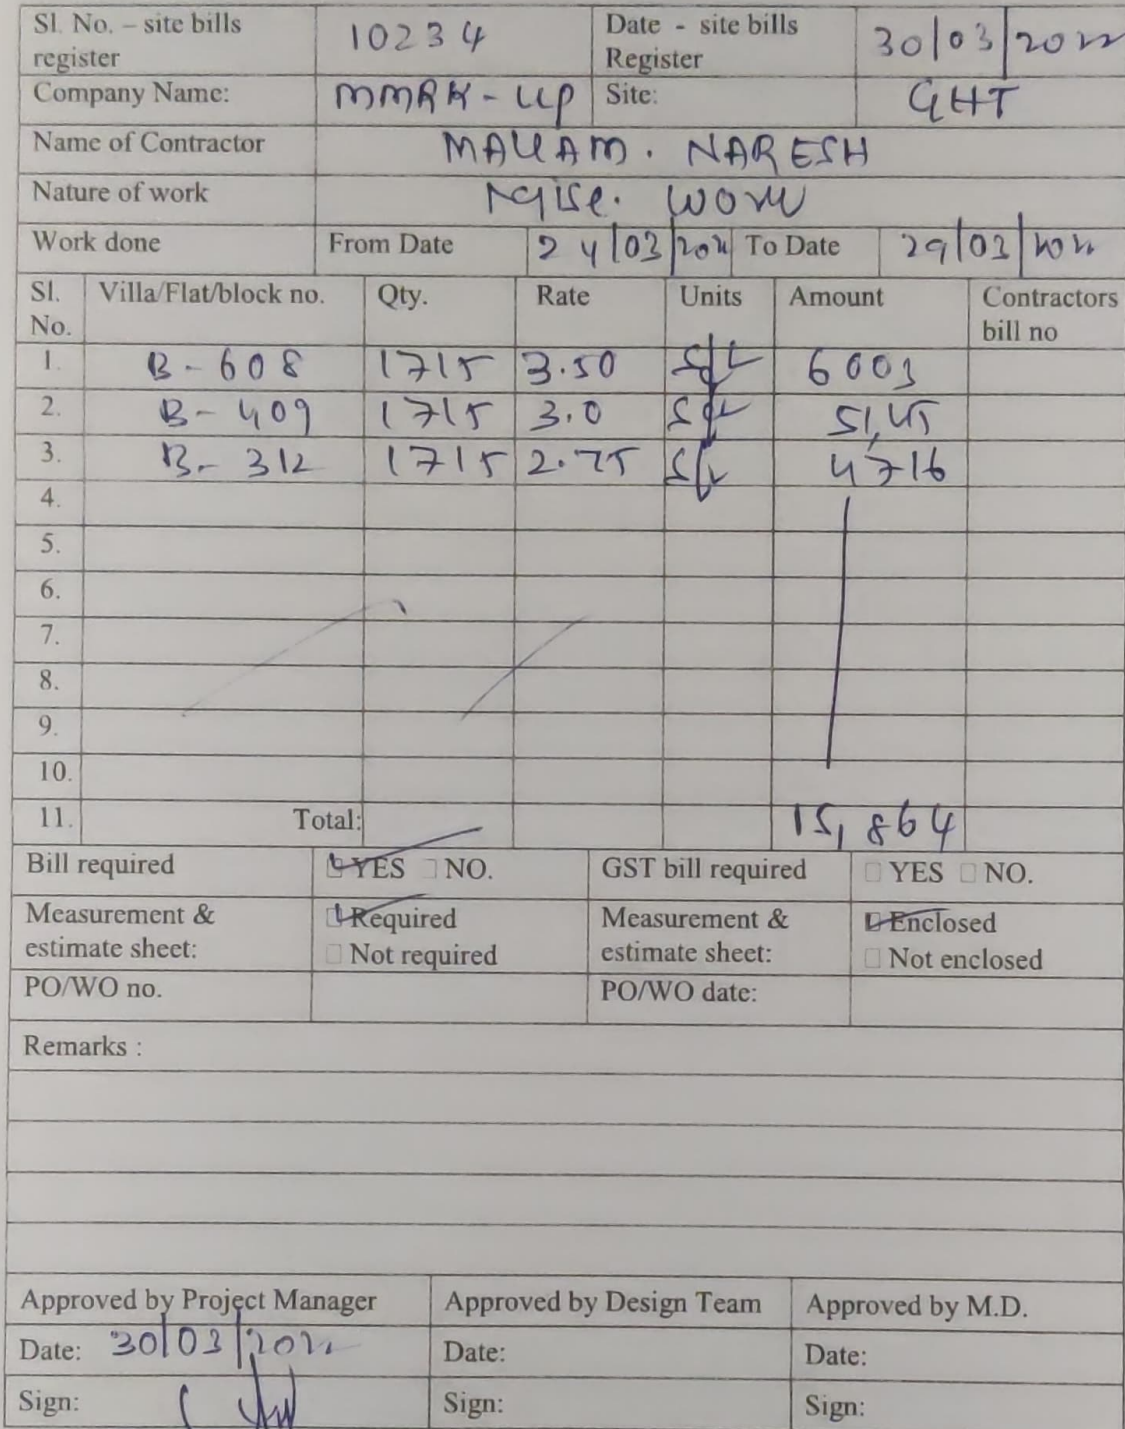 Sl. No. – site bills register 10234 Date - site bills Register 30/03/2022
Company Name: MMRK-UP Site: GHT
Name of Contractor MALLAM. NARESH
Nature of work Misc. Work
Work done From Date 24/03/2022 To Date 29/03/2022
Sl. No. Villa/Flat/block no. Qty. Rate Units Amount Contractors bill no
1. B-608 1715 3.50 sft 6003
2. B-409 1715 3.0 sft 51,45
3. B-312 1715 2.75 sft 4716
4.
5.
6.
7.
8.
9.
10.
11. Total: 15,864
Bill required YES NO. GST bill required YES NO.
Measurement & estimate sheet: Required Measurement & estimate sheet: Enclosed
Not required Not enclosed
PO/WO no. PO/WO date:
Remarks :
Approved by Project Manager Approved by Design Team Approved by M.D.
Date: 30/03/2022 Date: Date:
Sign: Sign: Sign: